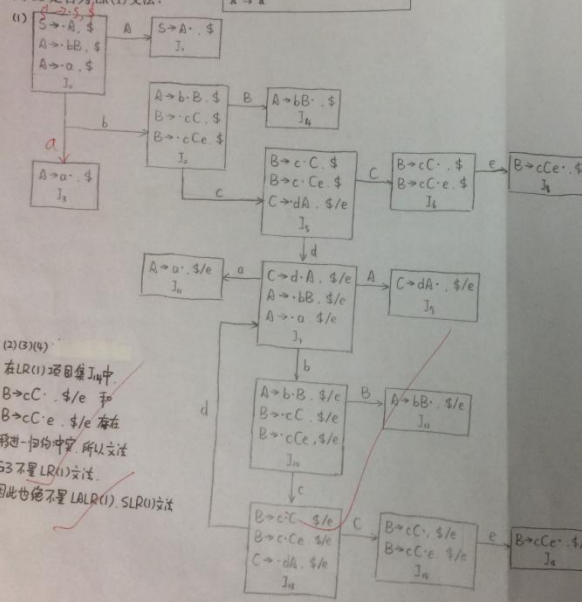 是否为LR(1)文法.
A → a
(1)
S→·A, $
A→·bB, $
A→·a, $
A
S→A·, $
b
a
A→a·, $
I₃
A→b·B, $
B→·cC, $
B→·cCe, $
I₂
B
A→bB·, $
I₄
c
B→c·C, $
B→c·Ce, $
C→·dA, $/e
I₅
C
B→cC·, $
B→cC·e, $
I₆
e
B→cCe·, $
I₈
d
A→a·, $/e
a
C→d·A, $/e
A→·bB, $/e
A→·a, $/e
I₇
A
C→dA·, $/e
I₉
b
A→b·B, $/e
B→·cC, $/e
B→·cCe, $/e
I₁₀
B
A→bB·, $/e
c
d
B→c·C, $/e
B→c·Ce, $/e
C→·dA, $/e
I₁₃
C
B→cC·, $/e
B→cC·e, $/e
e
B→cCe·, $/e
(2)(3)(4)
在LR(1)项目集I₁₄中,
B→cC·, $/e 和
B→cC·e, $/e 存在
移进-归约冲突, 所以文法
G3不是LR(1)文法.
因此也绝不是LALR(1), SLR(1)文法